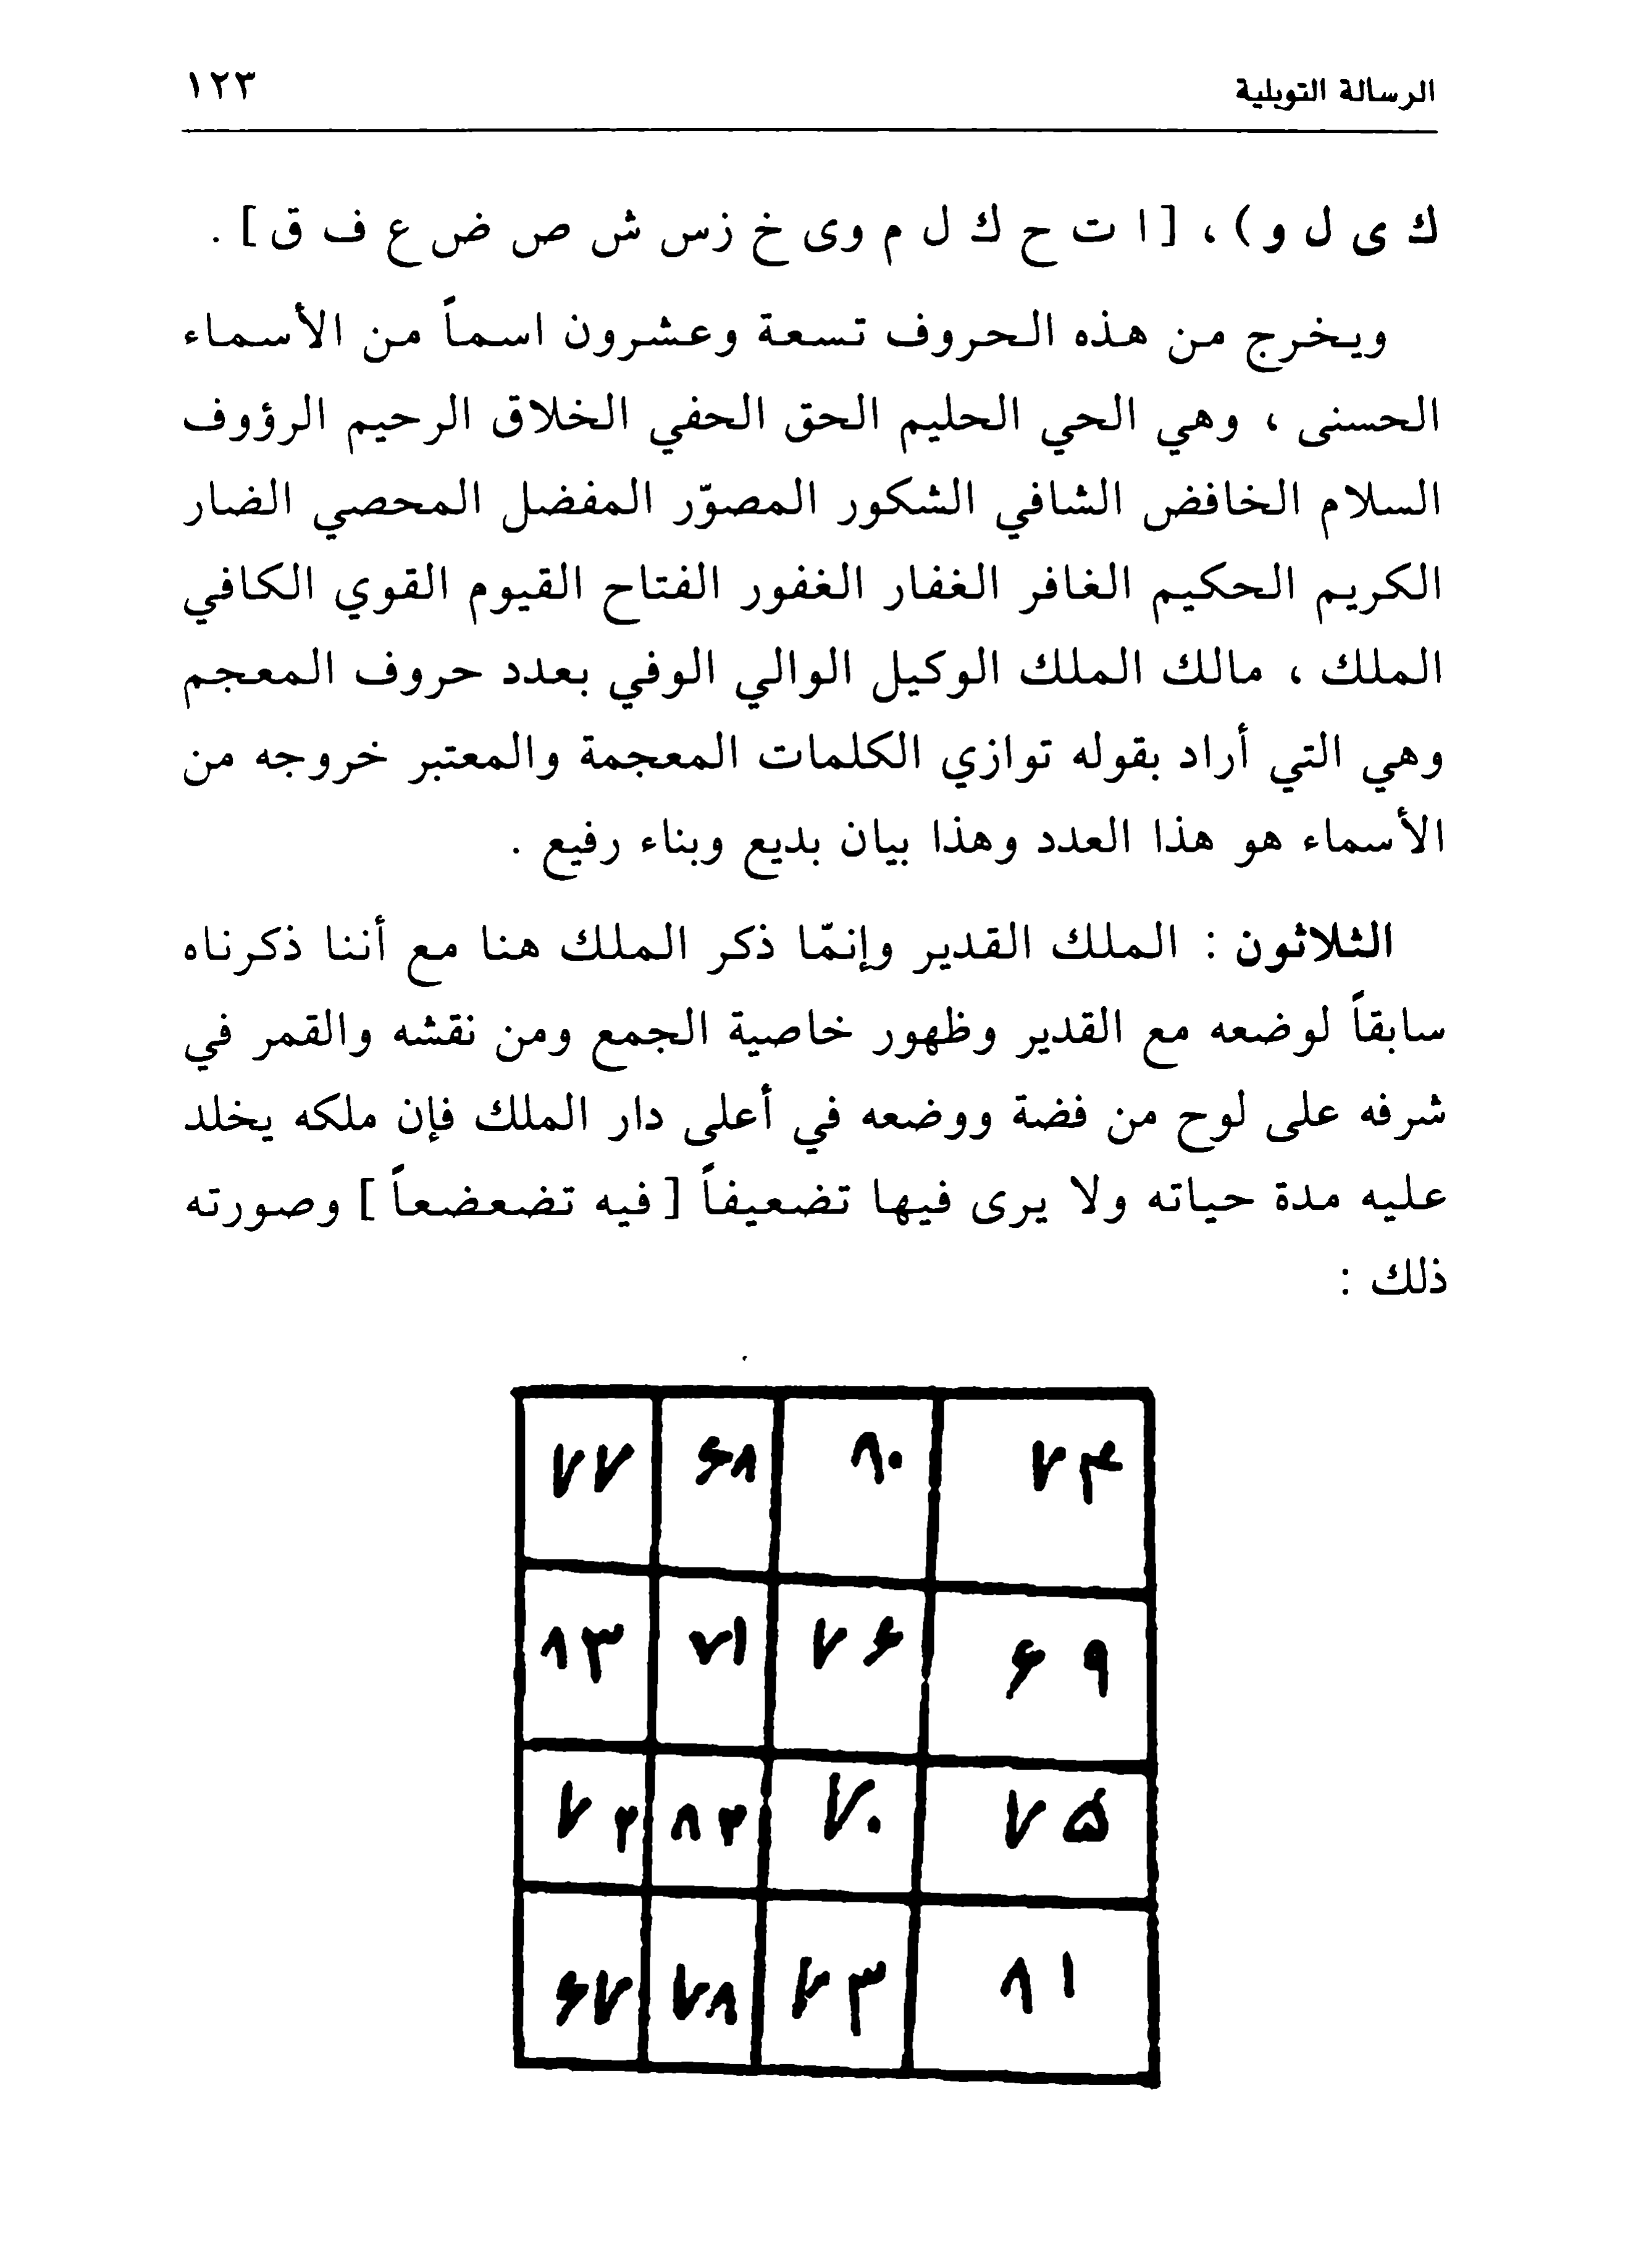 الرسالة التوبلية ١٢٣
ك ى ل و) ، [ا ت ح ك ل م وى خ زس ش ص ض ع ف ق] .
ويخرج من هذه الحروف تسعة وعشرون اسماً من الأسماء
الحسنى ، وهي الحي الحليم الحق الحفي الخلاق الرحيم الرؤوف
السلام الخافض الشافي الشكور المصوّر المفضل المحصي الضار
الكريم الحكيم الغافر الغفار الغفور الفتاح القيوم القوي الكافي
الملك ، مالك الملك الوكيل الوالي الوفي بعدد حروف المعجم
وهي التي أراد بقوله توازي الكلمات المعجمة والمعتبر خروجه من
الأسماء هو هذا العدد وهذا بيان بديع وبناء رفيع .
الثلاثون : الملك القدير وإنمّا ذكر الملك هنا مع أننا ذكرناه
سابقاً لوضعه مع القدير وظهور خاصية الجمع ومن نقشه والقمر في
شرفه على لوح من فضة ووضعه في أعلى دار الملك فإن ملكه يخلد
عليه مدة حياته ولا يرى فيها تضعيفاً [ فيه تضعضعاً ] وصورته
ذلك :
۷۴ ۸۰ ۶۸ ۷۷
۶۹ ۷۶ ۷۱ ۸۳
۷۵ ۷۰ ۸۳ ۷۲
۸۱ ۷۳ ۷۸ ۶۷